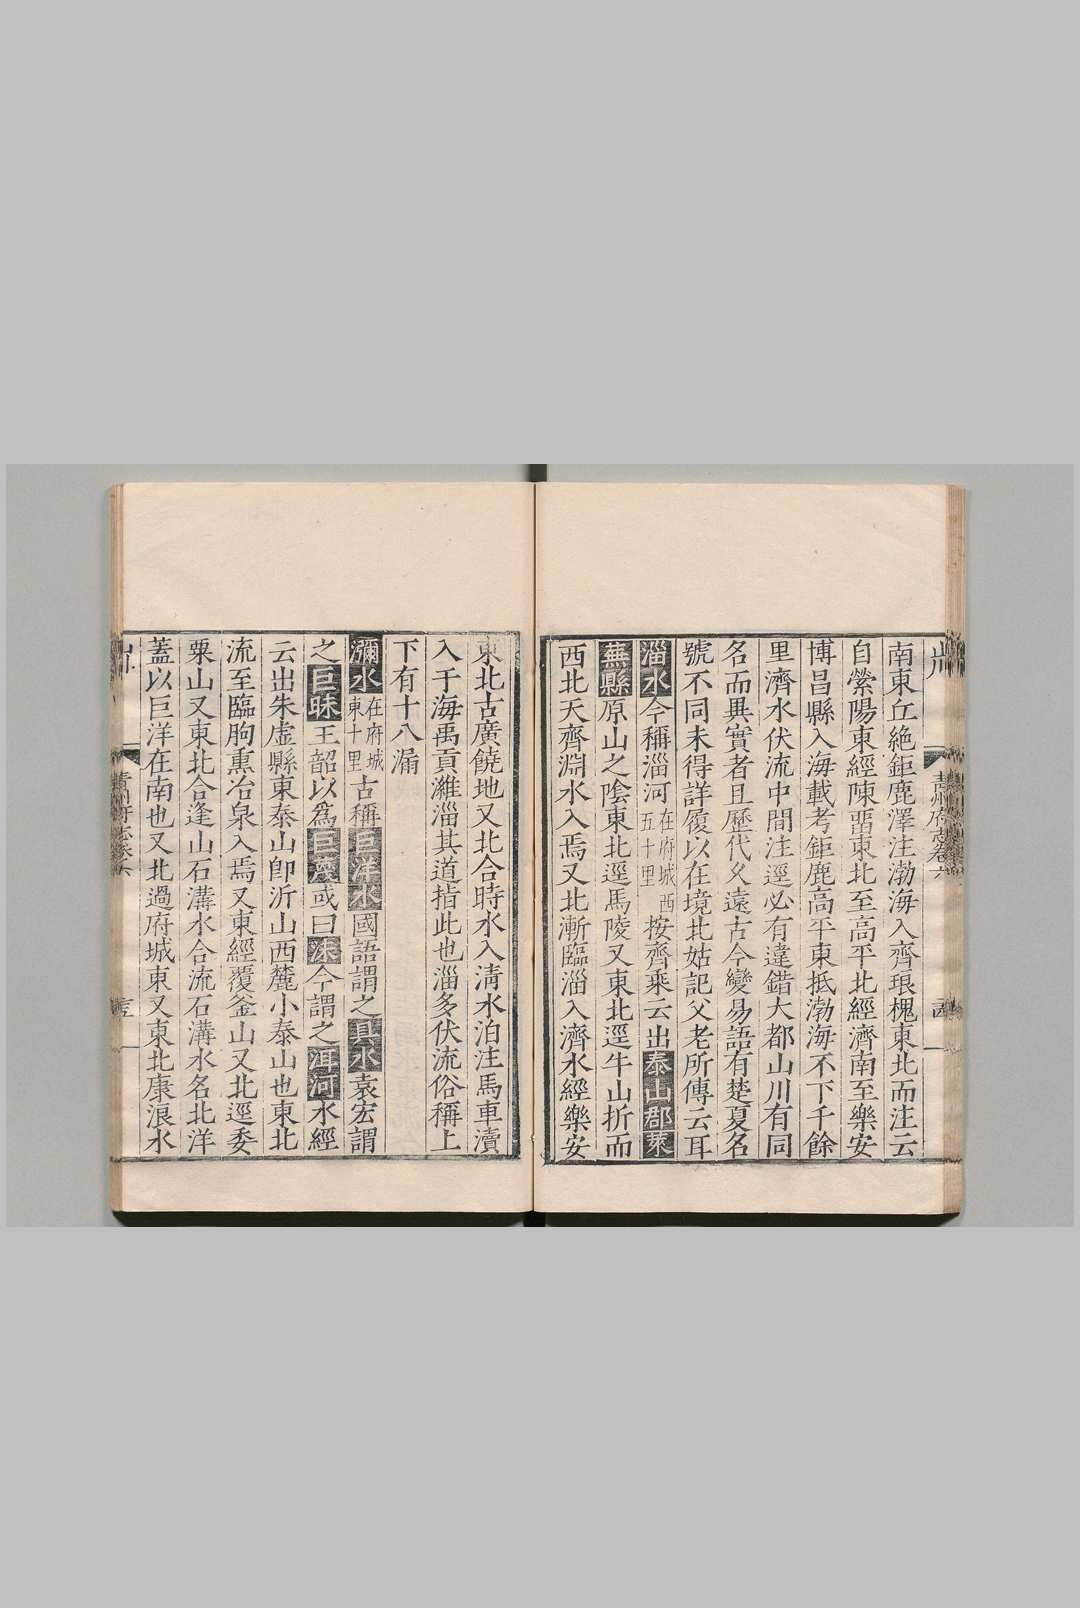 南東丘絶鉅鹿澤注渤海入齊琅槐東北而注云
自滎陽東經陳留東北至高平北經濟南至樂安
博昌縣入海載考鉅鹿高平東抵渤海不下千餘
里濟水伏流中間注逕必有違錯大都山川有同
名而異實者且歷代久遠古今變易語有楚夏名
號不同未得詳履以在境北姑記父老所傳云耳
淄水今稱淄河在府城西五十里按齊乘云出泰山郡萊
蕪縣原山之陰東北逕馬陵又東北逕牛山折而
西北天齊淵水入焉又北漸臨淄入濟水經樂安
東北古廣饒地又北合時水入淸水泊注馬車瀆
入于海禹貢濰淄其道指此也淄多伏流俗稱上
下有十八漏
瀰水在府城東十里古稱巨洋水國語謂之具水袁宏謂
之巨昧王韶以爲巨蔑或曰洣今謂之洱河水經
云出朱虛縣東泰山卽沂山西麓小泰山也東北
流至臨朐熏冶泉入焉又東經覆釜山又北逕委
粟山又東北合逢山石溝水合流石溝水名北洋
蓋以巨洋在南也又北過府城東又東北康浪水
青州府志卷六